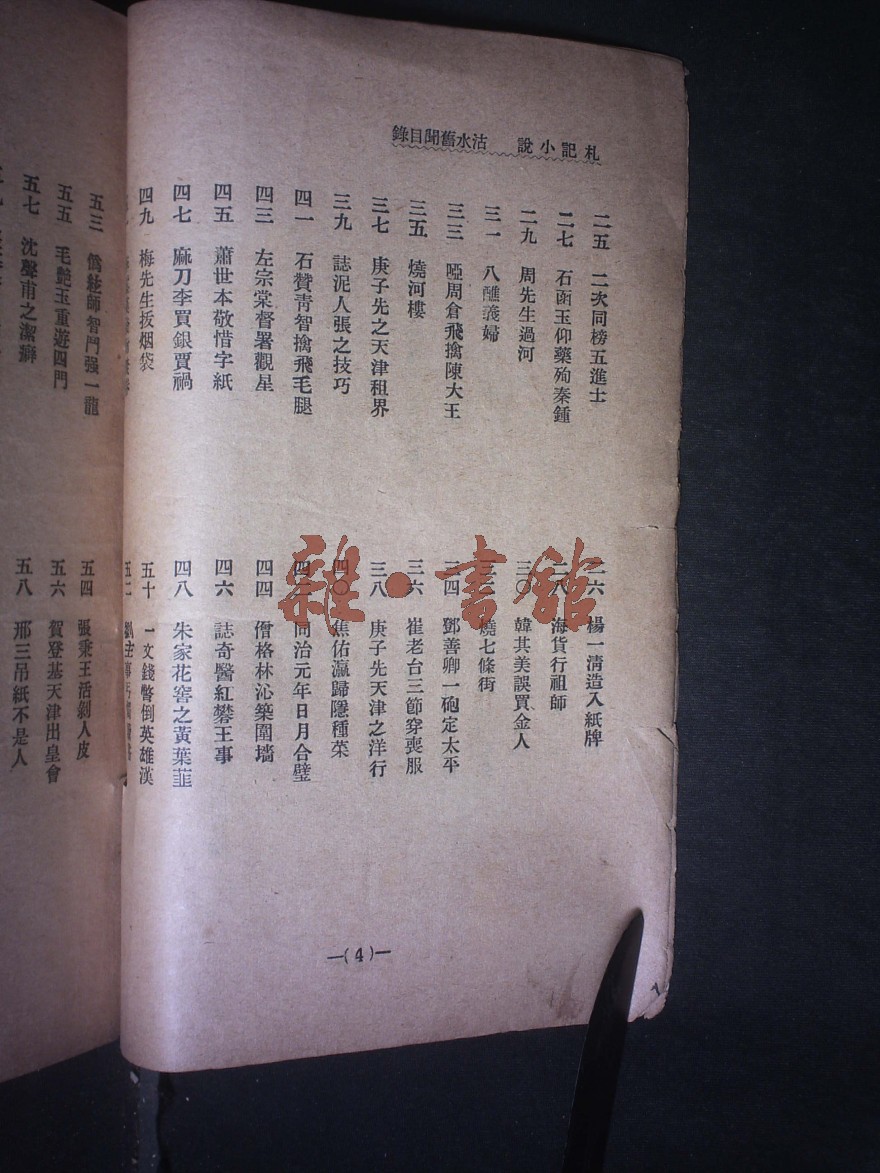 札記小說　沽水舊聞目錄
二五　二次同榜五進士
二六　楊一清造入紙牌
二七　石函玉仰藥殉秦鍾
二八　海貨行祖師
二九　周先生過河
三〇　韓其美誤買金人
三一　八醮義婦
三二　燒七條街
三三　啞周倉飛擒陳大王
三四　鄧善卿一砲定太平
三五　燒河樓
三六　崔老台三節穿喪服
三七　庚子先之天津租界
三八　庚子先天津之洋行
三九　誌泥人張之技巧
四〇　焦佑瀛歸隱種菜
四一　石贊青智擒飛毛腿
四二　同治元年日月合璧
四三　左宗棠督署觀星
四四　僧格林沁築圍墻
四五　蕭世本敬惜字紙
四六　誌奇醫紅礬王事
四七　麻刀李買銀賈禍
四八　朱家花窖之黃葉韮
四九　梅先生扳烟袋
五十　一文錢瞥倒英雄漢
五二
五三　師智鬥强一龍
五四　張秉王活剝人皮
五五　毛艷玉重遊四門
五六　賀登基天津出皇會
五七　沈聲甫之潔癖
五八　邢三吊紙不是人
—(4)—
雜·書館